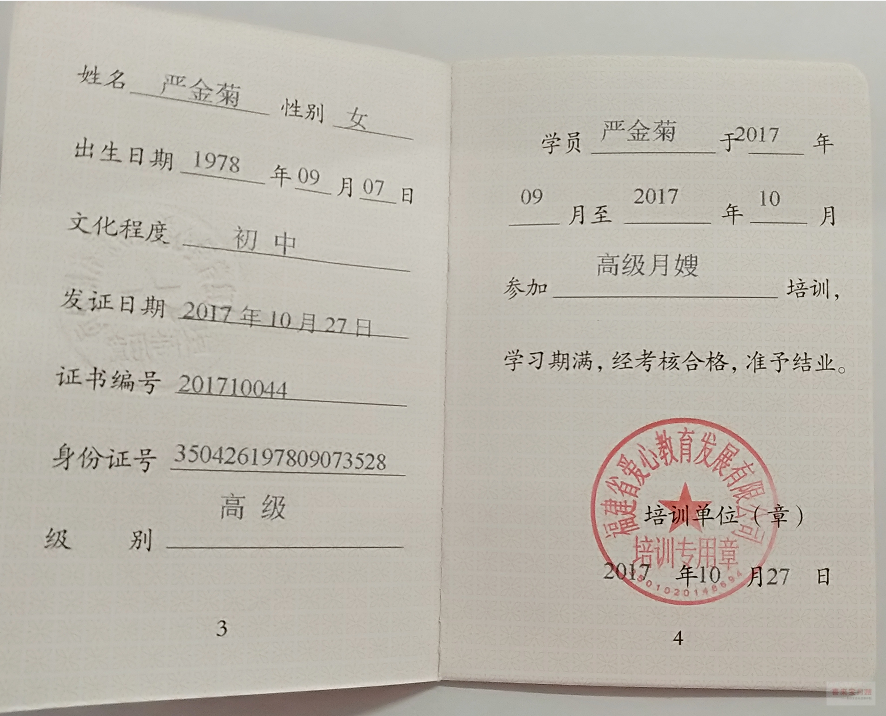 姓名 严金菊 性别 女
出生日期 1978 年 09 月 07 日
文化程度 初中
发证日期 2017年10月27日
证书编号 201710044
身份证号 350426197809073528
级别 高级
3
学员 严金菊 于2017 年
09 月至 2017 年 10 月
参加 高级月嫂 培训,
学习期满,经考核合格,准予结业。
福建省爱心教育发展有限公司
培训单位(章)
培训专用章
2017 年10 月27 日
4